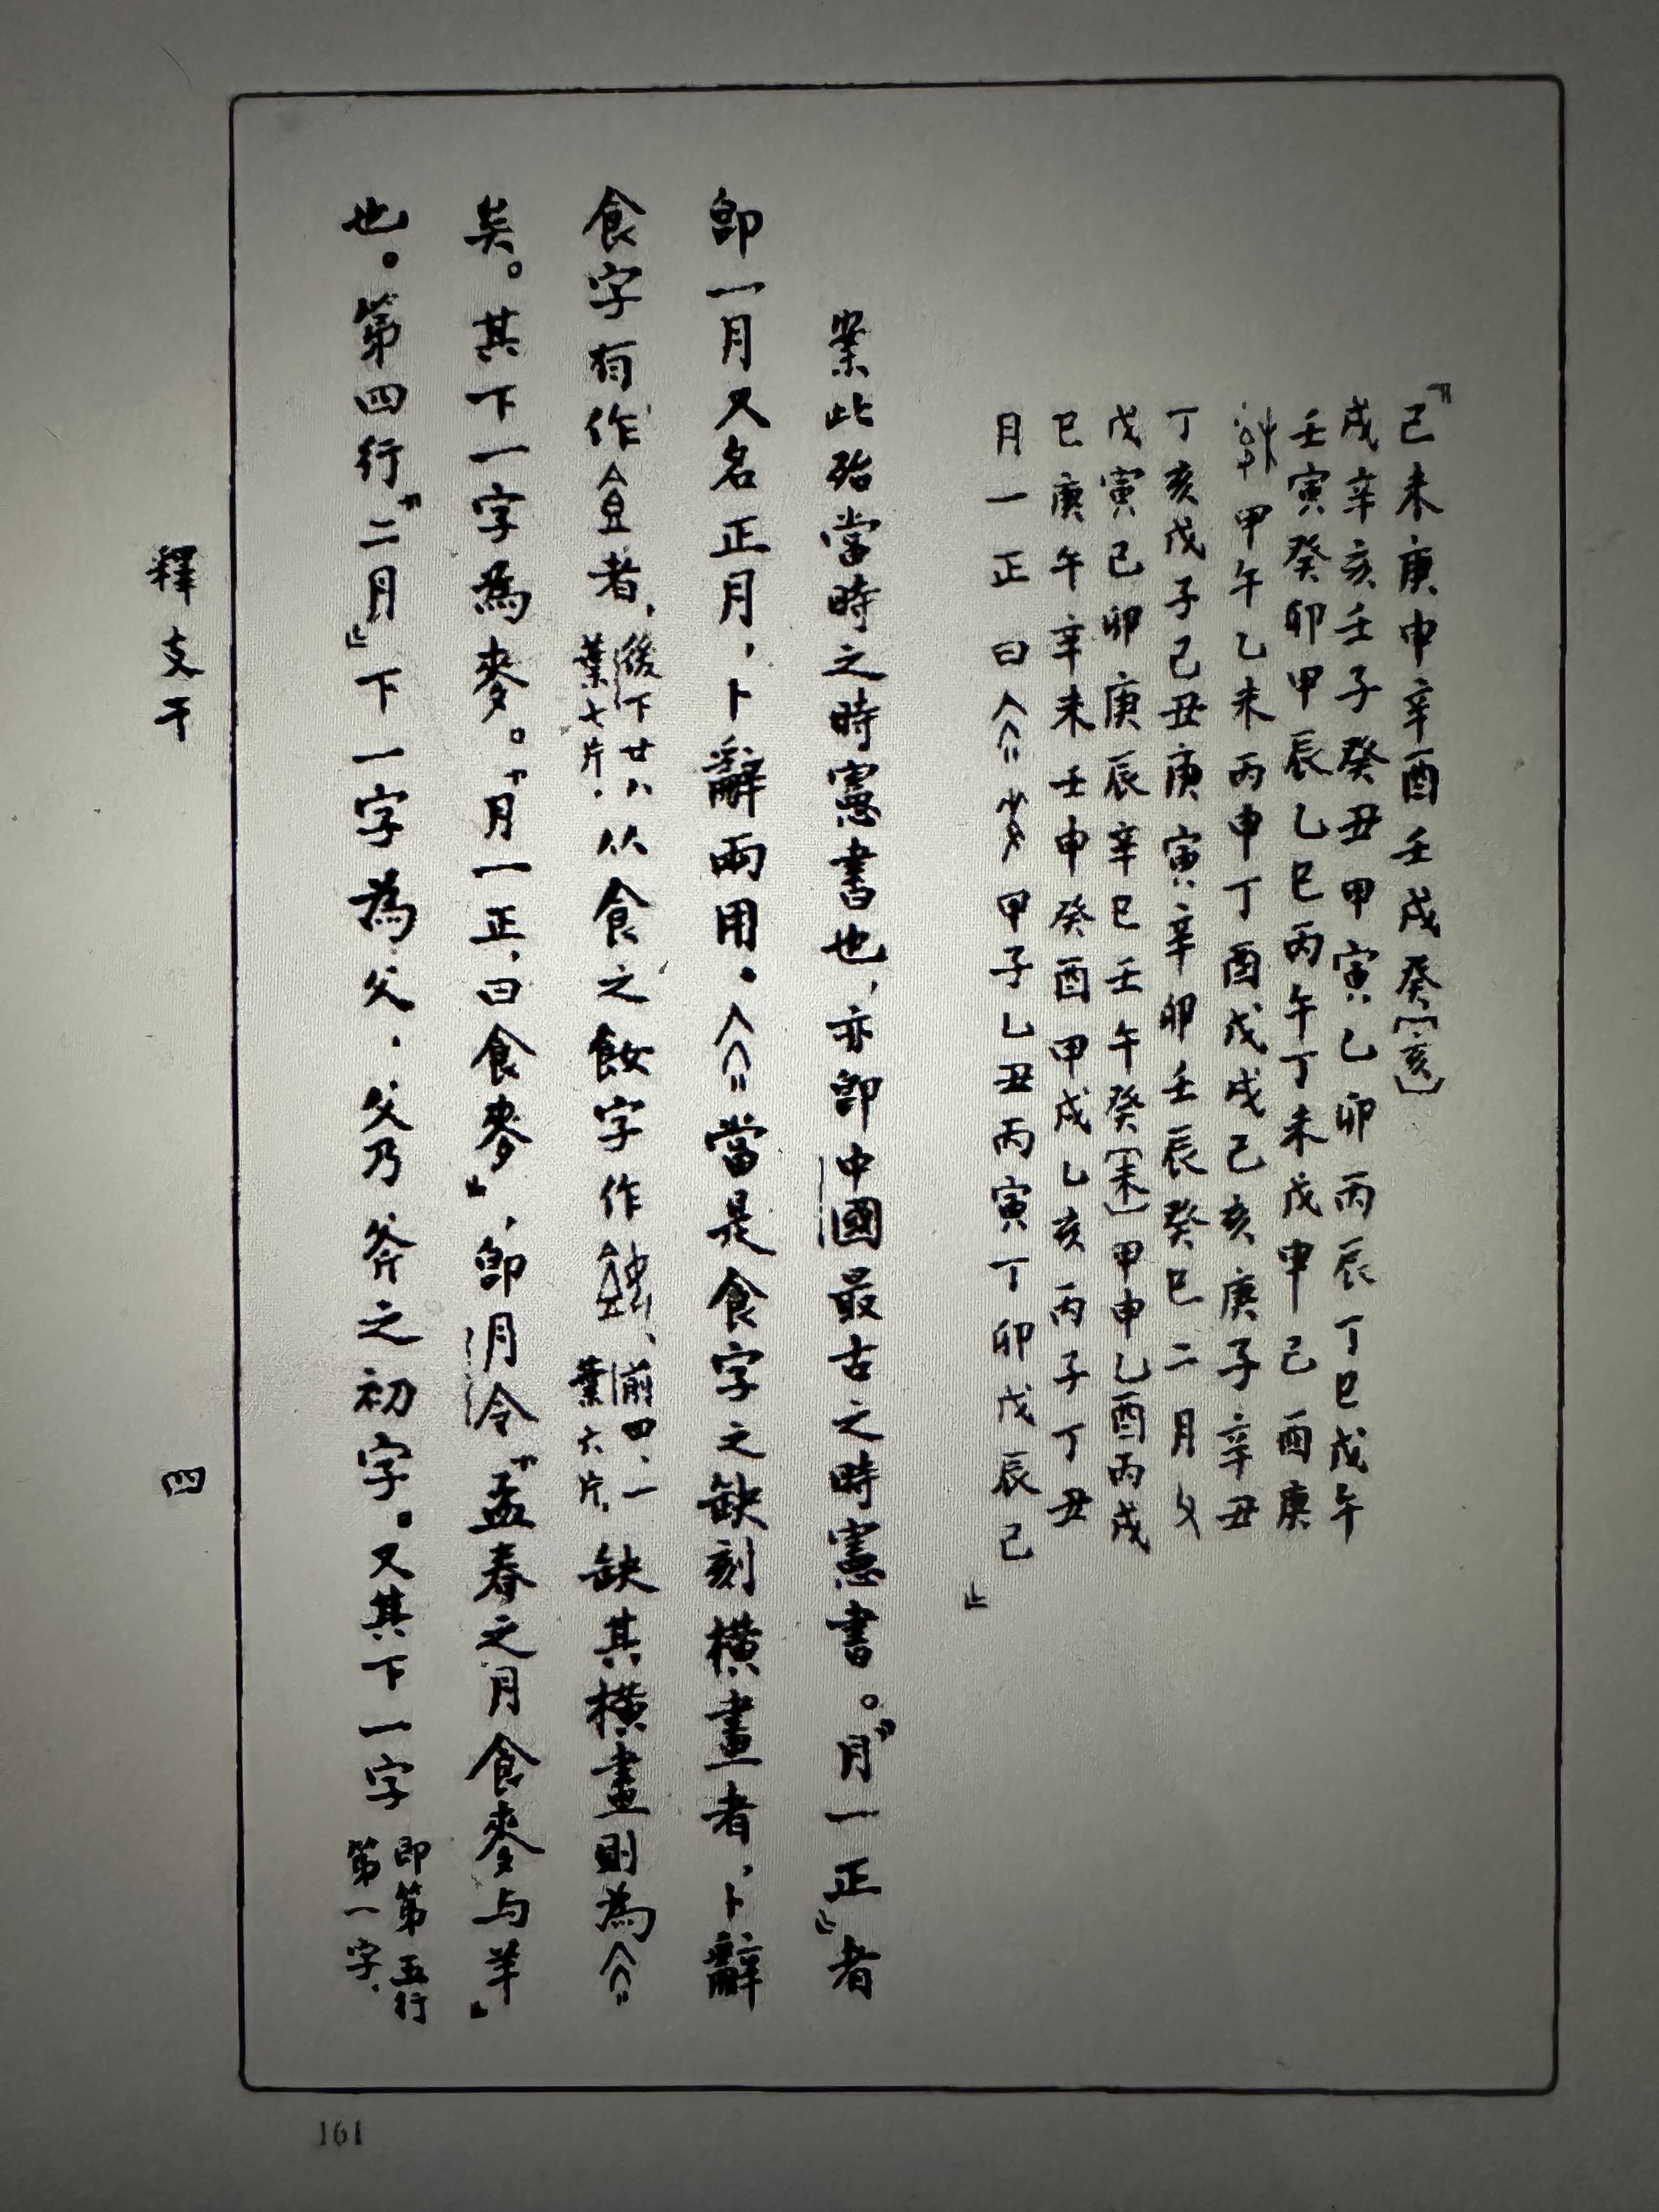 『己未庚申辛酉壬戌癸〔亥〕
戌辛亥壬子癸丑甲寅乙卯丙辰丁巳戊午
壬寅癸卯甲辰乙巳丙午丁未戊申己酉庚
甲午乙未丙申丁酉戊戌己亥庚子辛丑
丁亥戊子己丑庚寅辛卯壬辰癸巳二月父
戊寅己卯庚辰辛巳壬午癸〔未〕甲申乙酉丙戌
巳庚午辛未壬申癸酉甲戌乙亥丙子丁丑
月一正曰甲子乙丑丙寅丁卯戊辰己』
案此殆當時之時憲書也，亦即中國最古之時憲書。『月一正』者
即一月又名正月，卜辭兩用。當是食字之缺刻橫畫者，卜辭
食字有作者，後下廿八葉七片．从食之𩚳字作、前四．一葉六片．缺其橫畫則為
矣。其下一字為麥。『月一正、曰食麥』，即月令『孟春之月食麥与羊』
也。第四行『二月』下一字為父．父乃斧之初字。又其下一字即第五行第一字．
釋支干
四
161